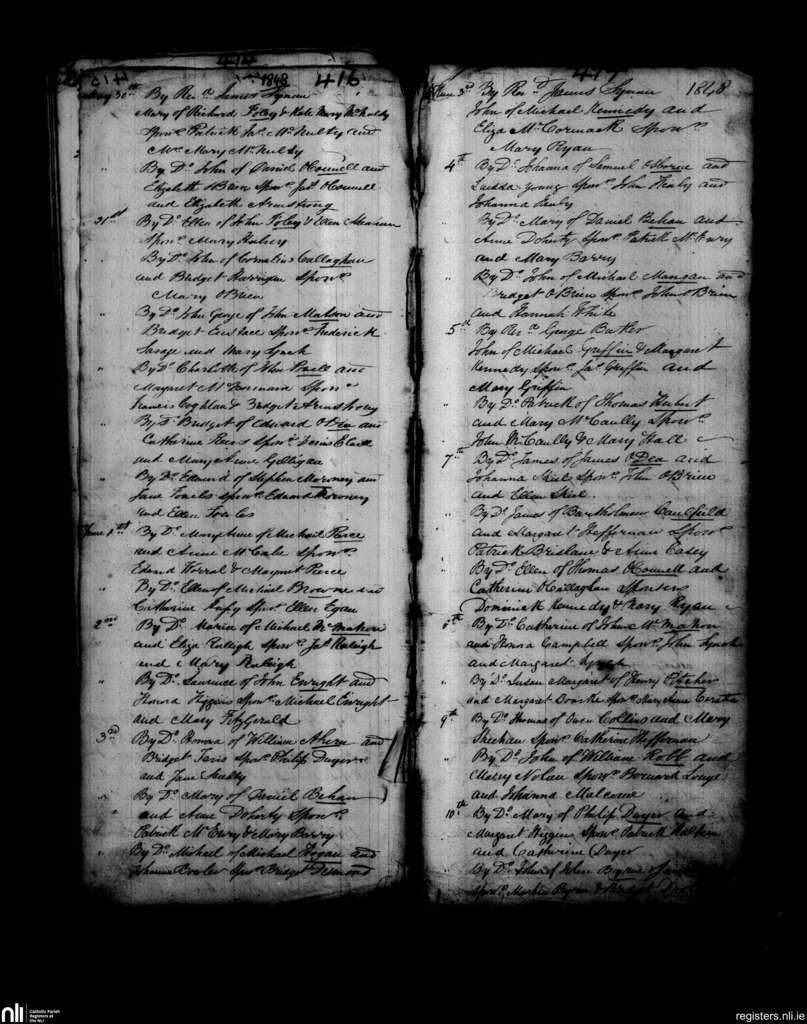 414
1848 416
May 30th By Revd James Synan
Mary of Richard Foley & Kate Mary McNulty
Sponrs Patrick Jas McNulty and
Mrs Mary McNulty
" By Do John of Daniel OConnell and
Elizabeth OBrien Sponrs Jas OConnell
and Elizabeth Armstrong
31st By Do Ellen of John Foley & Ellen
Sponr Mary
" By Do John of Cornelius Callaghan
and Bridget Harrigan Sponr
Mary OBrien
" By Do John George of John Matson and
Bridget Eustace Sponrs Frederick
Savage and Mary Lynch
" By Do Charlotte of John and
Margaret McNamara Sponrs
Francis Coghlan & Bridget Armstrong
" By Do Bridget of Edward OBrien and
Catherine Sponrs
and Mary Anne Galligan
" By Do Edward of Stephen Moroney and
Jane Fowles Sponrs Edward Moroney
and Ellen Fowles
June 1st By Do MaryAnne of Michael Pierce
and Anne McCabe Sponrs
Edward Worrol & Margaret Pierce
" By Do Ellen of Michael Browne and
Catherine Sponr Ellen Egan
2nd By Do Maria of Michael McMahon
and Eliza Raleigh Sponrs Jas Raleigh
and Mary Raleigh
" By Do Laurence of John Enright and
Honora Higgins Sponrs Michael Enright
and Mary FitzGerald
3rd By Do Honora of William Ahern and
Bridget Sponrs Philip Dwyer
and Jane
" By Do Mary of Daniel Behan
and Anne Doherty Sponrs
Patrick McEvry & Mary Barry
" By Do Michael of Michael Hogan and
Johanna Sponr Bridget
417
June 3d By Revd James Synan 1848
John of Michael Kennedy and
Eliza McCormack Sponrs
Mary Ryan
4th By Do Johanna of Samuel Osborne and
young Sponrs John and
Johanna
" By Do Mary of Daniel Behan and
Anne Doherty Sponrs Patrick McEvry
and Mary Barry
" By Do John of Michael Mangan and
Bridget OBrien Sponrs John OBrien
and Hannah White
5th By Revd George Baker
John of Michael Griffin & Margaret
Kennedy Sponrs Jas Griffin and
Mary Griffin
" By Do Patrick of Thomas Hubert
and Mary McCaully Sponrs
John McCaully & Mary Hall
7th By Do James of James ODea and
Johanna Sponrs John OBrien
and Ellen
" By Do James of Bartholmew Caulfield
and Margaret Heffernan Sponrs
Patrick Brislane & Anne Casey
" By Do Ellen of Thomas OConnell and
Catherine OCallaghan Sponsers
Dominick Kennedy & Mary Ryan
By Do Catherine of John McMahon
and Honora Campbell Sponrs John Lynch
and Margaret Lynch
" By Do Susan Margaret of Henry Pitcher
and Margaret Bourke Sponr Mary Anne
9th By Do Thomas of Owen Collins and Mary
Sheehan Sponr Catherine Heffernan
" By Do John of William Robb and
Mary Nolan Sponrs Bernard
and Johanna Malcome
10th By Do Mary of Philip Dwyer and
Margaret Higgins Sponrs Patrick Halpin
and Catherine Dwyer
" By Do John of John Byrne
Sponrs Martin Byrne & Bridget
nli
Catholic Parish
Registers at
the NLI
registers.nli.ie